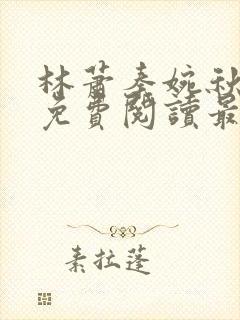 林蕭秦婉秋
免費閱讀最
素拉蓬